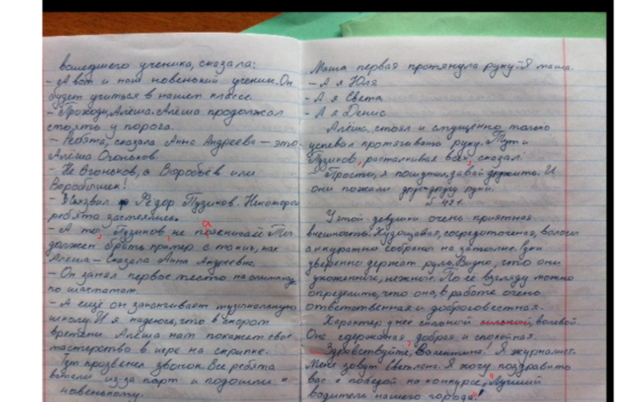 вошедшего ученика, сказала:
- А вот и наш новенький ученик. Он
будет учиться в нашем классе.
- Проходи, Алёша. Алёша продолжал
стоять у порога.
- Ребята, сказала Анна Андреевна - это
Алёша Огоньков.
- Не Огоньков, а Воробьев или
Воробышек!
- Съязвил Фёдор Пузиков. Некоторые
ребята засмеялись.
- А ты, Пузиков не
должен брать пример с таких, как
Алёша - сказала Анна Андреевна.
- Он занял первое место на олимпиаде
по шахматам.
- А ещё он заканчивает музыкальную
школу. И я надеюсь, что в скором
времени Алёша нам покажет свое
мастерство в игре на скрипке.
Тут прозвенел звонок. Все ребята
встали из-за парт и подошли к
новенькому.
Маша первая протянула руку - Я Маша.
- А я Юля
- А я Света
- А я Денис
Алёша стоял и смущенно только
успевал протягивать руку. Тут и
Пузиков, расталкивая всех, сказал:
Прости, я пошутил, давай дружить. И
они пожали друг другу руки.
У этой девушки очень приятная
внешность. Худощавая, сосредоточена, волосы
аккуратно собраны на затылке. Руки
уверенно держат руль. Видно, что они
ухоженные, нежные. По ее взгляду можно
определить, что она в работе очень
ответственная и добросовестная.
Характер у нее сильный, волевой.
Она сдержанная, добрая и спокойная.
- Здравствуйте, Валентина. Я журналист.
Меня зовут Светлана. Я хочу поздравить
вас с победой на конкурсе, "Лучший
водитель нашего города"!